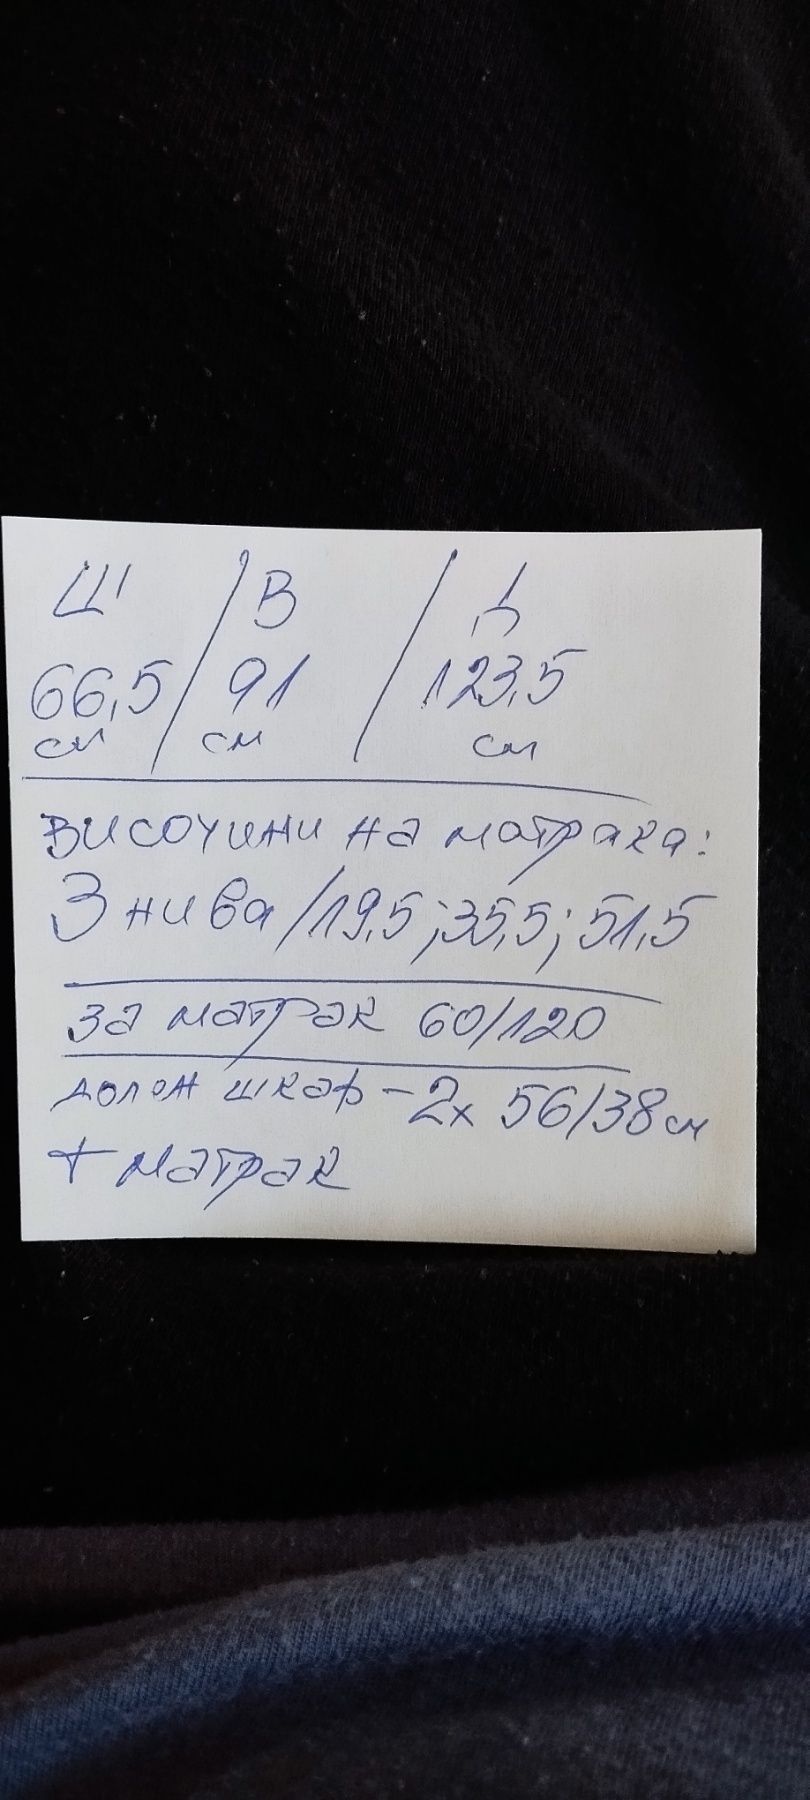 Ш / В / Д
66,5 / 91 / 123,5
см см см
височини на матрака:
3 нива / 19,5; 35,5; 51,5
за матрак 60/120
долен шкаф - 2х 56/38 см
+ матрак